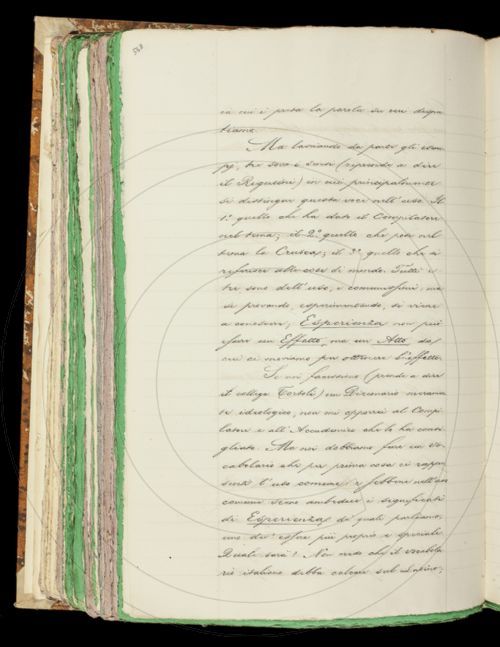 568
in cui è presa la parola su cui disputiamo.
Ma lasciando da parte gli esempj, tre sono i sensi (riprende a dire
il Rigutini) in cui principalmente
si distingue questa voce nell'uso. Il
1.º quello che ha dato il Compilatore
nel tema; il 2.º quello che pon nel
tema la Crusca; il 3.º quello che si
riferisce alle cose di mondo. Tutti e
tre sono dell'uso, e comunissimi, ma
si provando, esperimentando, si viene
a conoscere; Esperienza non può
esser un Effetto, ma un Atto, da
cui ci moviamo per ottenere l'effetto.
Se noi facessimo (prende a dire
il collega Tortoli) un Dizionario meramente
ideologico, non mi opporrei al Compilatore
e all'Accademico che lo ha consigliato.
Ma noi dobbiamo fare un Vocabolario
che per prima cosa ci rappresenti
l'uso comune; e sebbene nell'uso
comune viene ambedue i significati
di Esperienza, de' quali parliamo,
uno dev'esser più proprio e speciale.
Quale sarà? Non credo che il vocabolario
italiano debba calcare sul Latino;